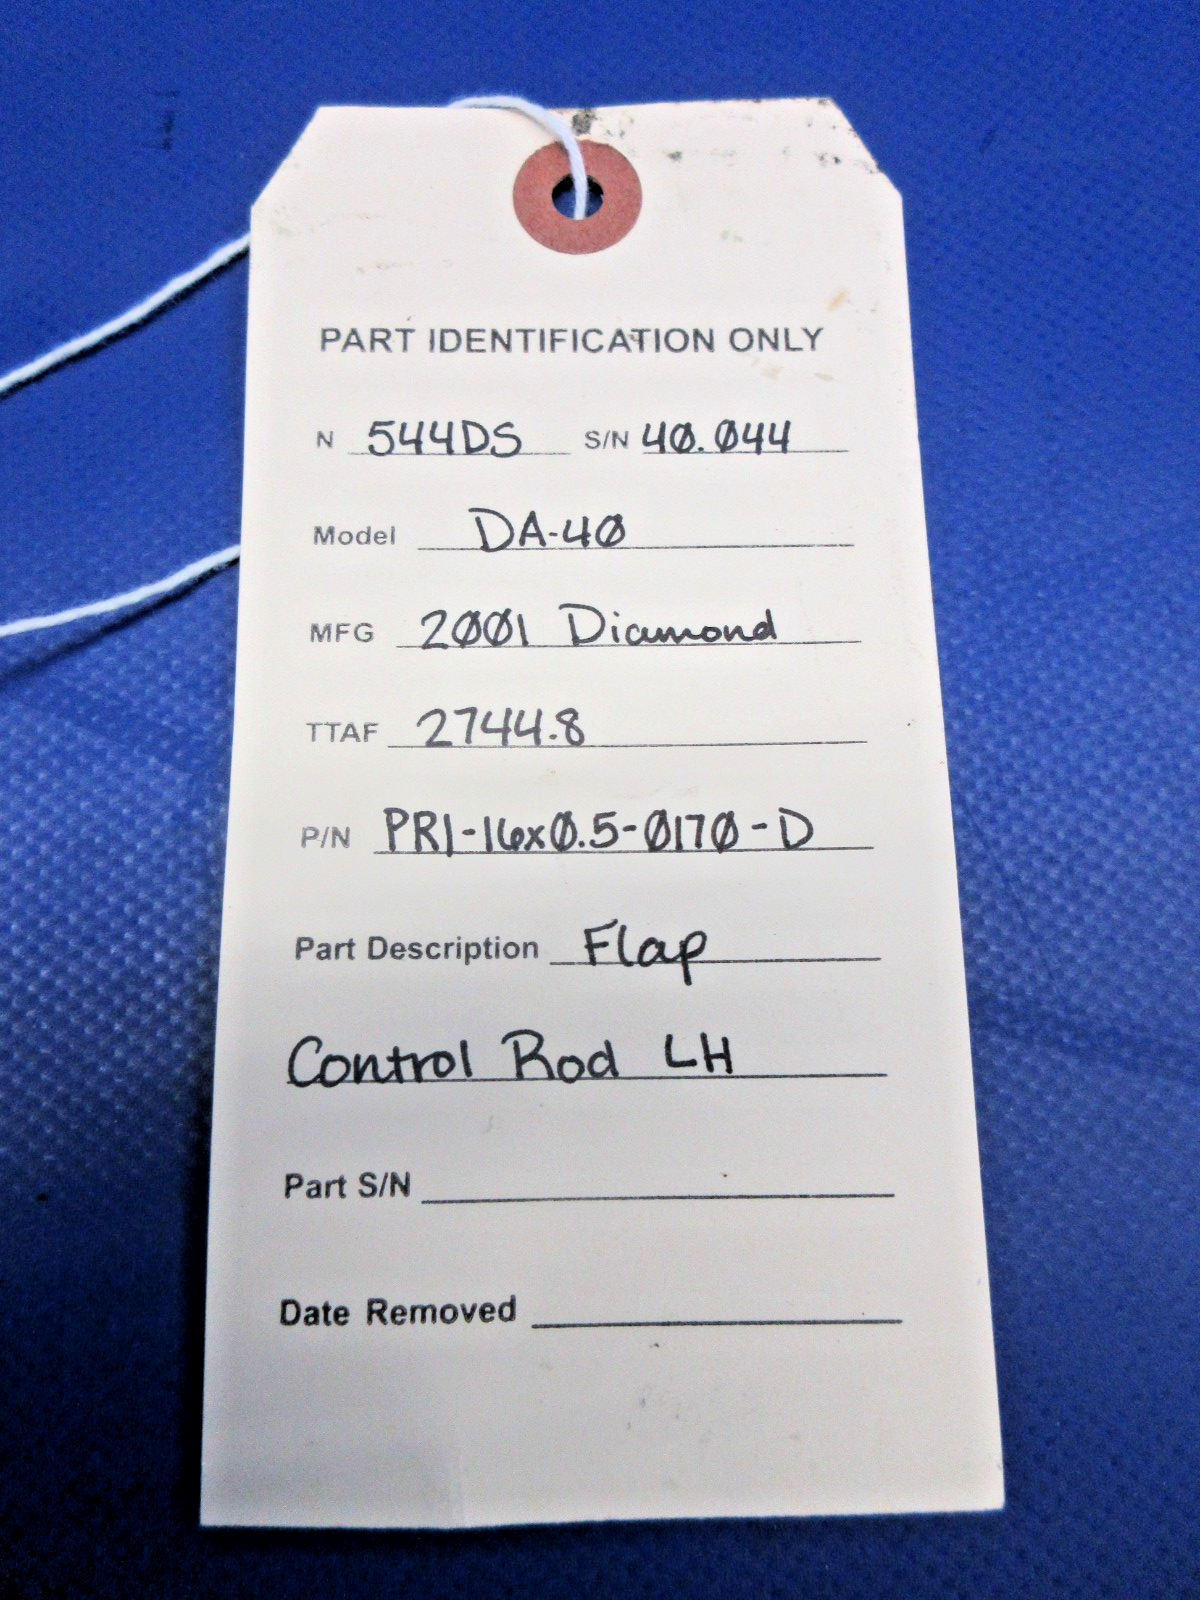 PART IDENTIFICATION ONLY
N 544DS S/N 40.044
Model DA-40
MFG 2001 Diamond
TTAF 2744.8
P/N PR1-16x0.5-0170-D
Part Description Flap
Control Rod LH
Part S/N
Date Removed